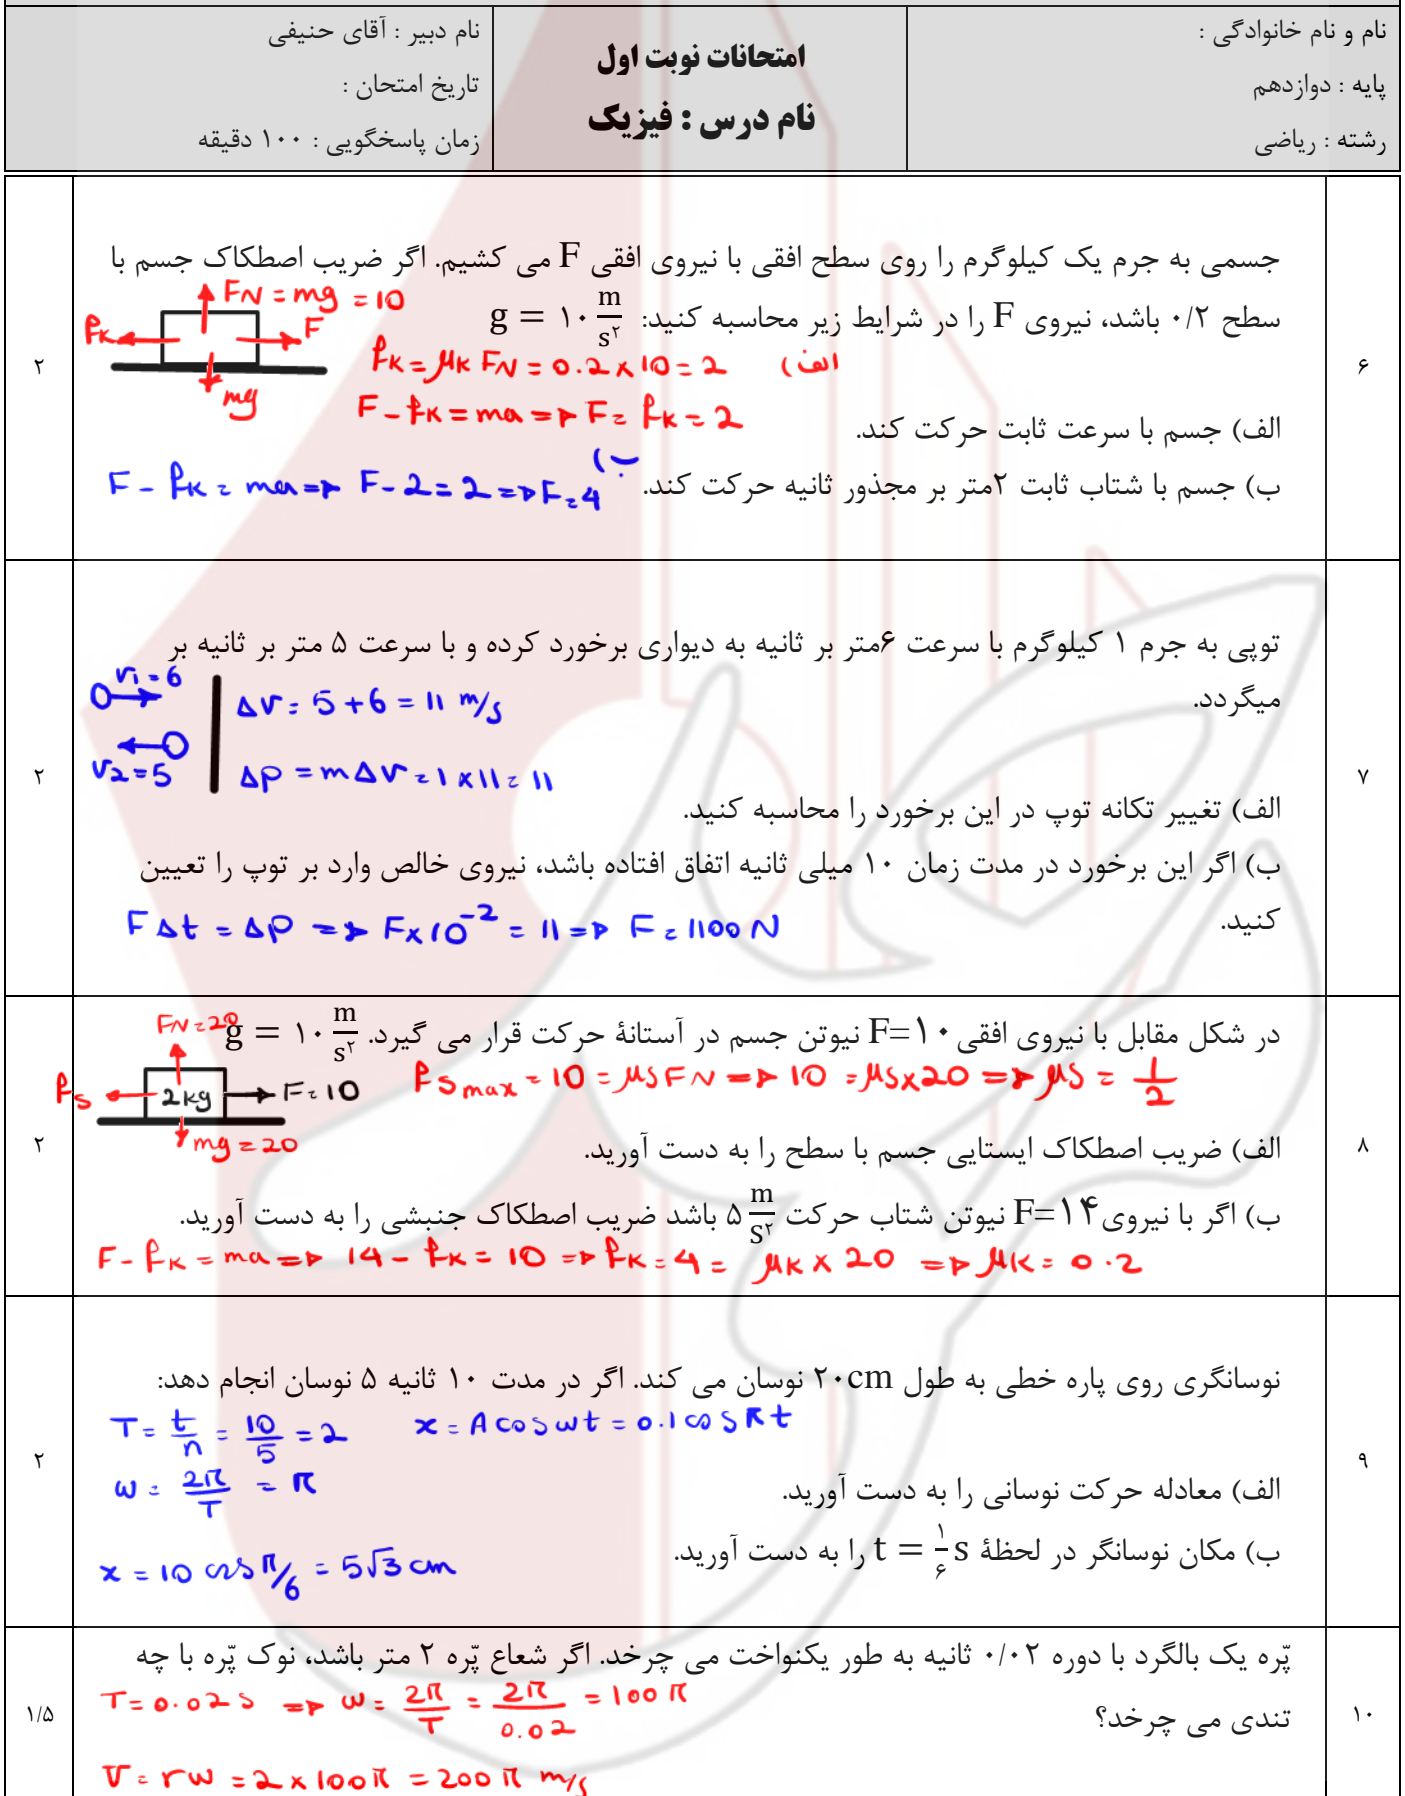 نام و نام خانوادگی :
پایه : دوازدهم
رشته : ریاضی
امتحانات نوبت اول
نام درس : فیزیک
نام دبیر : آقای حنیفی
تاریخ امتحان :
زمان پاسخگویی : ۱۰۰ دقیقه
۶
جسمی به جرم یک کیلوگرم را روی سطح افقی با نیروی افقی F می کشیم. اگر ضریب اصطکاک جسم با
سطح ۰/۲ باشد، نیروی F را در شرایط زیر محاسبه کنید: g = ۱۰ m/s²
FN = mg = 10
fk
F
mg
الف) fk = μk FN = 0.2 x 10 = 2
F - fk = ma => F = fk = 2
الف) جسم با سرعت ثابت حرکت کند.
ب) جسم با شتاب ثابت ۲متر بر مجذور ثانیه حرکت کند.
ب) F - fk = ma => F - 2 = 2 => F = 4
۲
۷
توپی به جرم ۱ کیلوگرم با سرعت ۶متر بر ثانیه به دیواری برخورد کرده و با سرعت ۵ متر بر ثانیه بر
میگردد.
v1 = 6
Δv = 5 + 6 = 11 m/s
v2 = 5
Δp = mΔv = 1 x 11 = 11
الف) تغییر تکانه توپ در این برخورد را محاسبه کنید.
ب) اگر این برخورد در مدت زمان ۱۰ میلی ثانیه اتفاق افتاده باشد، نیروی خالص وارد بر توپ را تعیین
کنید.
FΔt = Δp => F x 10⁻² = 11 => F = 1100 N
۲
۸
در شکل مقابل با نیروی افقی F=۱۰ نیوتن جسم در آستانهٔ حرکت قرار می گیرد. g = ۱۰ m/s²
FN = 20
fs
2kg
F = 10
mg = 20
fs max = 10 = μs FN => 10 = μs x 20 => μs = 1/2
الف) ضریب اصطکاک ایستایی جسم با سطح را به دست آورید.
ب) اگر با نیروی F=۱۴ نیوتن شتاب حرکت ۵ m/s² باشد ضریب اصطکاک جنبشی را به دست آورید.
F - fk = ma => 14 - fk = 10 => fk = 4 = μk x 20 => μk = 0.2
۲
۹
نوسانگری روی پاره خطی به طول ۲۰cm نوسان می کند. اگر در مدت ۱۰ ثانیه ۵ نوسان انجام دهد:
T = t/n = 10/5 = 2
x = A cos ωt = 0.1 cos πt
ω = 2π/T = π
الف) معادله حرکت نوسانی را به دست آورید.
ب) مکان نوسانگر در لحظهٔ t = ۱/۶ s را به دست آورید.
x = 10 cos π/6 = 5√3 cm
۲
۱۰
پّره یک بالگرد با دوره ۰/۰۲ ثانیه به طور یکنواخت می چرخد. اگر شعاع پّره ۲ متر باشد، نوک پّره با چه
تندی می چرخد؟
T = 0.02 s => ω = 2π/T = 2π/0.02 = 100π
v = rω = 2 x 100π = 200π m/s
۱/۵